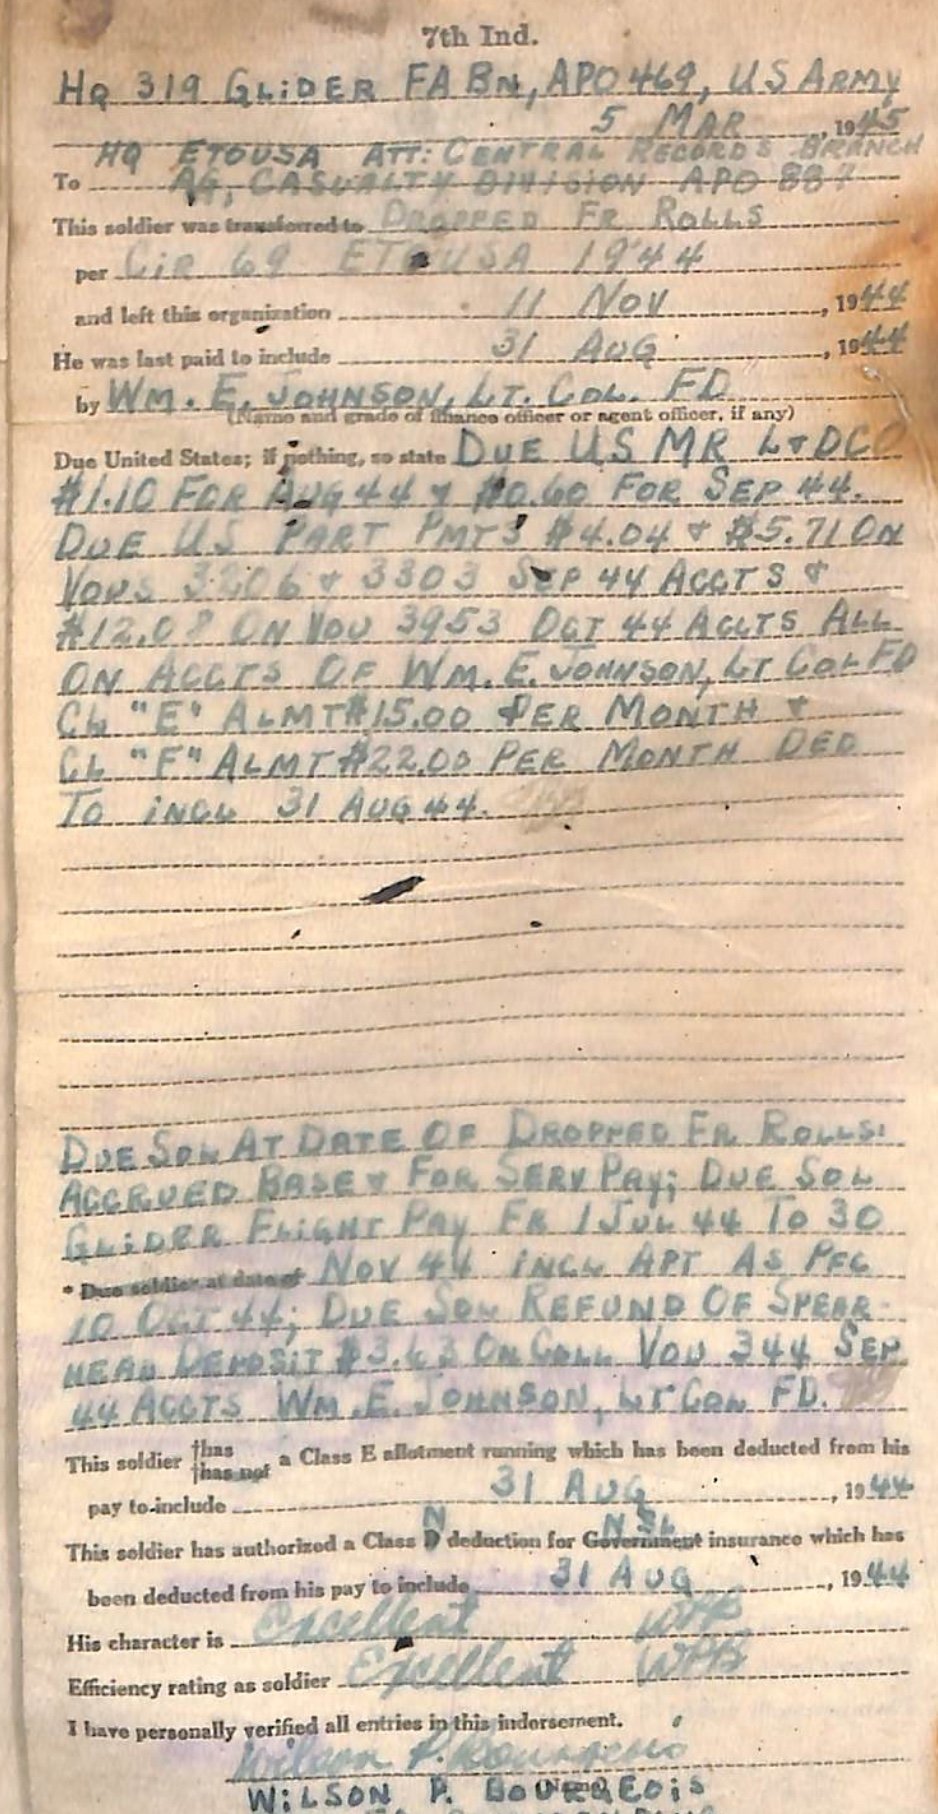 7th Ind.
HQ 319 GLIDER FA BN, APO 469, US ARMY
5 MAR, 1945
HQ ETOUSA ATT: CENTRAL RECORDS BRANCH
To AG, CASUALTY DIVISION APO 887
This soldier was transferred to DROPPED FR ROLLS
per CIR 69 ETOUSA 1944
and left this organization 11 NOV, 1944
He was last paid to include 31 AUG, 1944
by WM. E. JOHNSON, LT. COL. FD
(Name and grade of finance officer or agent officer, if any)
Due United States; if nothing, so state DUE US MR L&DCO
$1.10 FOR AUG 44 & $0.60 FOR SEP 44.
DUE US PART PMTS $4.04 & $5.71 ON
VOUS 3206 & 3303 SEP 44 ACCTS &
$12.08 ON VOU 3953 OCT 44 ACCTS ALL
ON ACCTS OF WM. E. JOHNSON, LT COL FD
CL "E" ALMT $15.00 PER MONTH &
CL "F" ALMT $22.00 PER MONTH DED
TO INCL 31 AUG 44.
DUE SOL AT DATE OF DROPPED FR ROLLS:
ACCRUED BASE & FOR SERV PAY; DUE SOL
GLIDER FLIGHT PAY FR 1 JUL 44 TO 30
* Due soldier at date of NOV 44 INCL APT AS PFC
10 OCT 44; DUE SOL REFUND OF SPEAR-
HEAD DEPOSIT $3.63 ON COLL VOU 344 SEP
44 ACCTS WM. E. JOHNSON, LT COL FD.
This soldier †has †has not a Class E allotment running which has been deducted from his
pay to include 31 AUG, 1944
This soldier has authorized a Class D N deduction for Government NSL insurance which has
been deducted from his pay to include 31 AUG, 1944
His character is Excellent WPB
Efficiency rating as soldier Excellent WPB
I have personally verified all entries in this indorsement.
Wilson P. Bourgeois
WILSON P. BOURGEOIS
(Name)